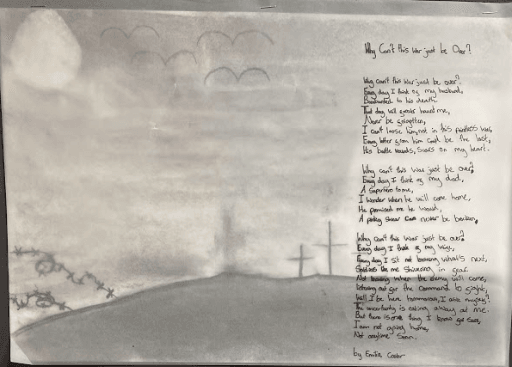 Why Can't this War just be Over?
Why can't this war just be over?
Every day I think of my husband,
to his death
That day will forever haunt me,
Never be forgotten,
I can't loose him, not in this pointless war,
Every letter from him could be the last,
His battle wounds, scars on my heart.
Why can't this war just be over?
Every day I think of my dad,
A superhero to me,
I wonder when he will come home,
He promised me he would,
A pinky swear can never be broken,
Why can't this war just be over?
Every day I think of my wife,
Every day I sit not knowing what's next,
like me shivering in fear
Not knowing when the enemy will come,
Listening out for the command to fight,
Will I be here tomorrow, I ask myself?
The uncertainty is eating away at me.
But there is one thing I know for sure,
I am not going home,
Not anytime soon.
by Emilia